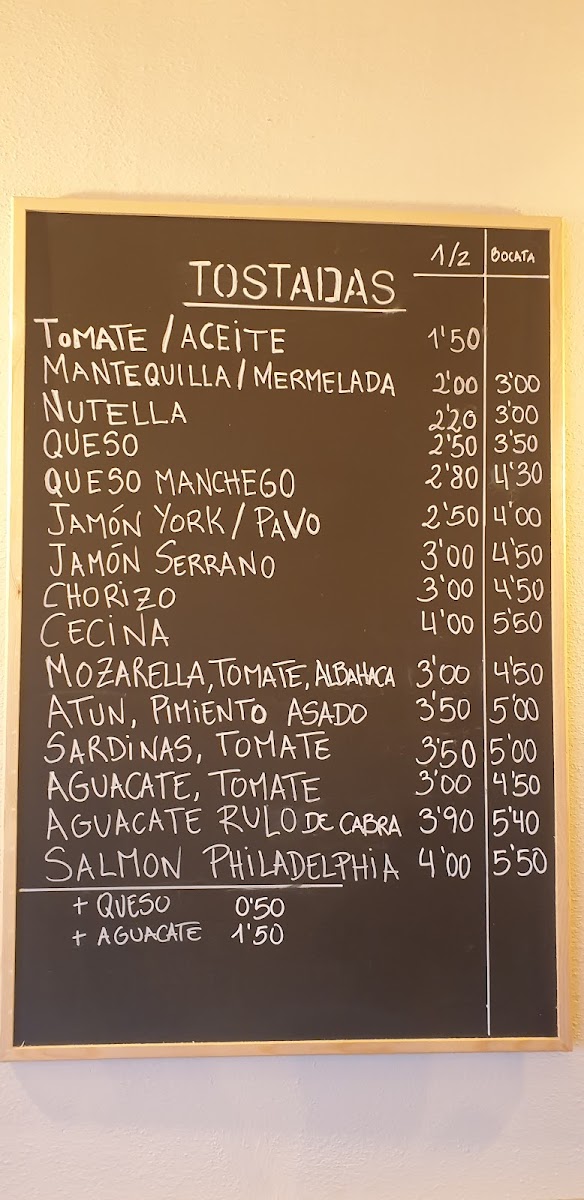 1/2 BOCATA
TOSTADAS
TOMATE / ACEITE 1'50
MANTEQUILLA / MERMELADA 2'00 3'00
NUTELLA 2'20 3'00
QUESO 2'50 3'50
QUESO MANCHEGO 2'80 4'30
JAMÓN YORK / PAVO 2'50 4'00
JAMÓN SERRANO 3'00 4'50
CHORIZO 3'00 4'50
CECINA 4'00 5'50
MOZARELLA, TOMATE, ALBAHACA 3'00 4'50
ATUN, PIMIENTO ASADO 3'50 5'00
SARDINAS, TOMATE 3'50 5'00
AGUACATE, TOMATE 3'00 4'50
AGUACATE RULO DE CABRA 3'90 5'40
SALMON PHILADELPHIA 4'00 5'50
+ QUESO 0'50
+ AGUACATE 1'50